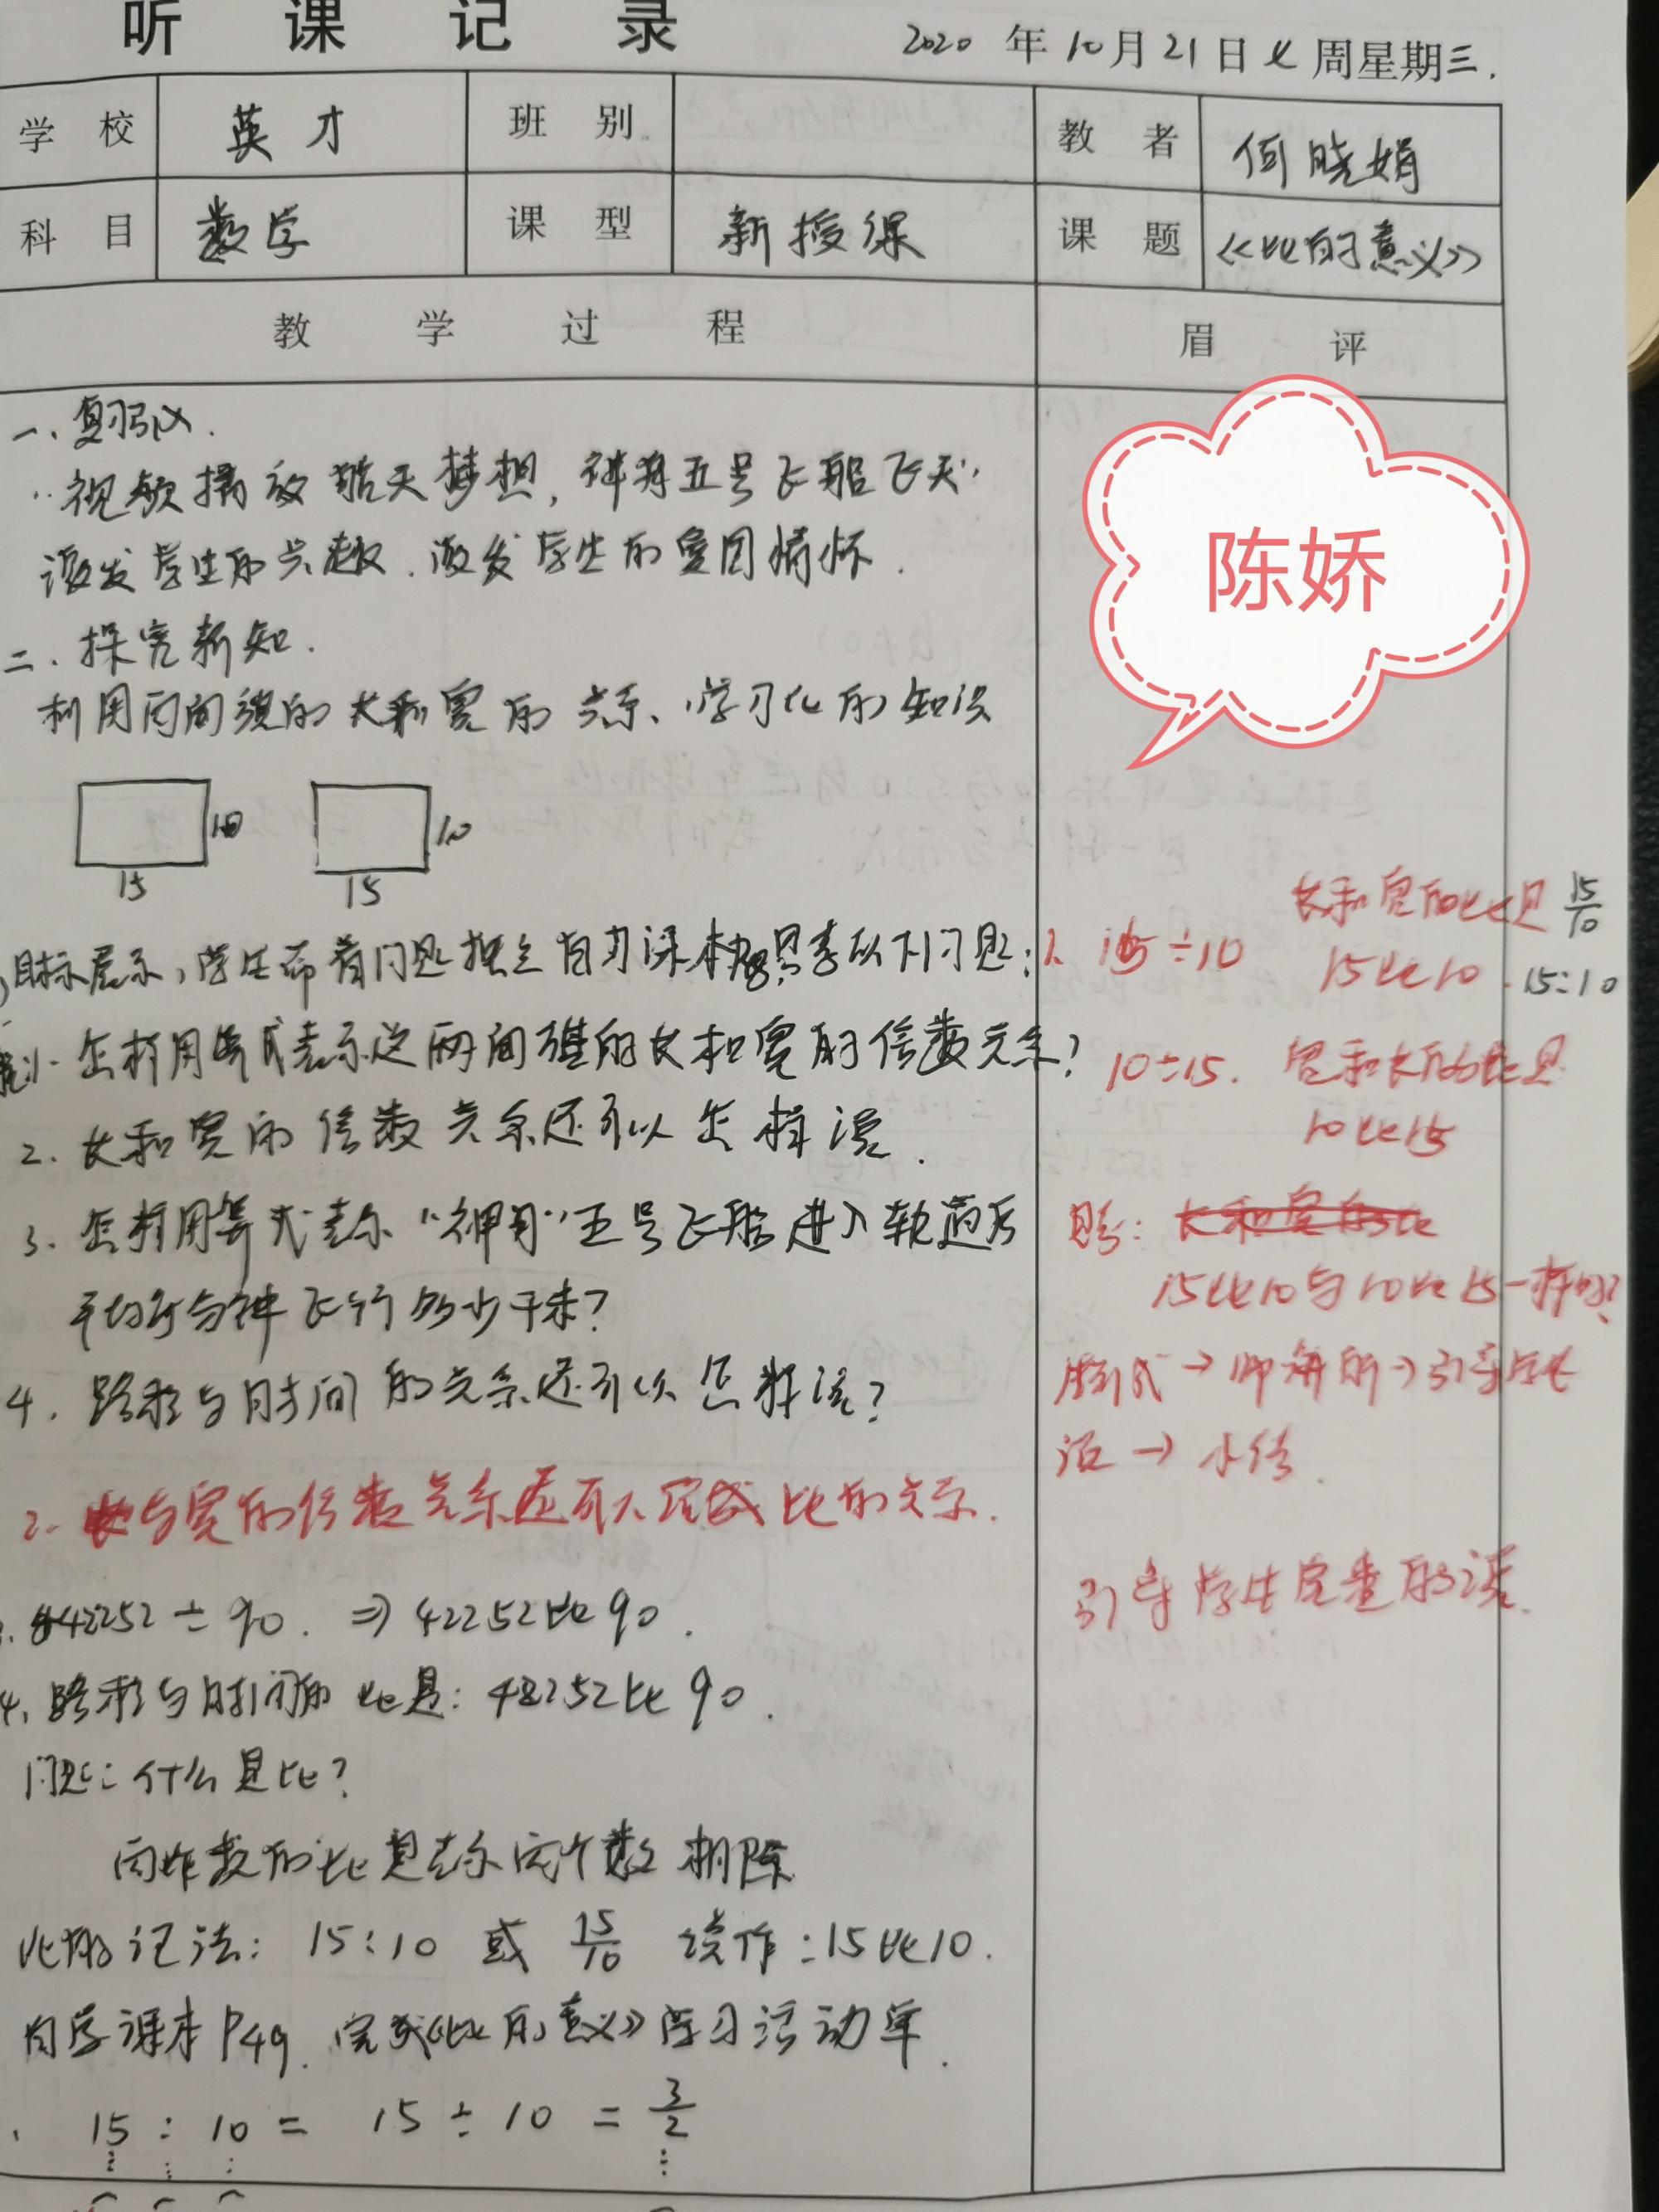 听 课 记 录
2020 年 10 月 21 日 七 周星期三.
学 校 英才 班 别 教 者 何晓娟
科 目 数学 课 型 新授课 课 题 《比的意义》
教 学 过 程 眉 评
一、复习引入.
视频播放 航天梦想, 神舟五号飞船飞天
激发学生的兴趣. 激发学生的爱国情怀.
陈娇
二. 探究新知.
利用两面旗的长和宽的关系、学习比的知识
10 10
15 15
目标展示, 学生带着问题 自习课本 思考以下问题:
1. 怎样用算式表示这两面旗的长和宽的倍数关系?
2. 长和宽的倍数关系还可以怎样说.
3. 怎样用算式表示 "神舟" 五号飞船进入轨道后
平均每分钟飞行多少千米?
4. 路程与时间的关系还可以怎样说?
2. 长与宽的倍数关系还可以 成比的关系.
42252 ÷ 90. ⇒ 42252比90.
4. 路程与时间的比是: 42252比90.
问题: 什么是比?
两个数的比是表示两个数相除
比的记法: 15:10 或 15/10 读作: 15比10.
自学课本P49. 完成《比的意义》学习活动单.
15 : 10 = 15 ÷ 10 = 3/2
1. 15÷10 长和宽的比是 15/10
15比10. 15:10
10÷15. 宽和长的比是
10比15
思考: 长和宽的比
15比10与10比15一样吗?
→ 师 析 → 引导学生
说 → 小结.
引导学生完整的说.